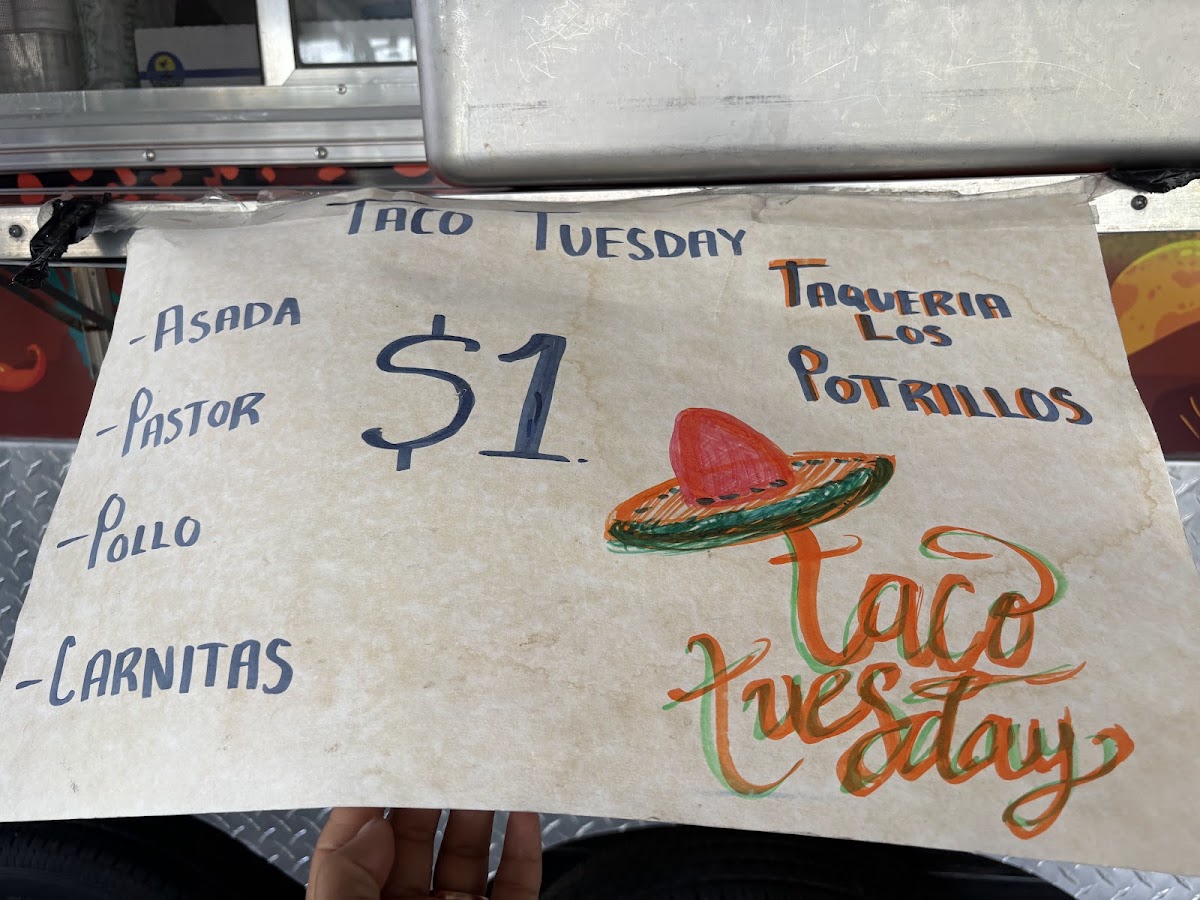 TACO TUESDAY
-ASADA
-PASTOR
-POLLO
-CARNITAS
$1.
TAQUERIA
LOS
POTRILLOS
taco
tuesday